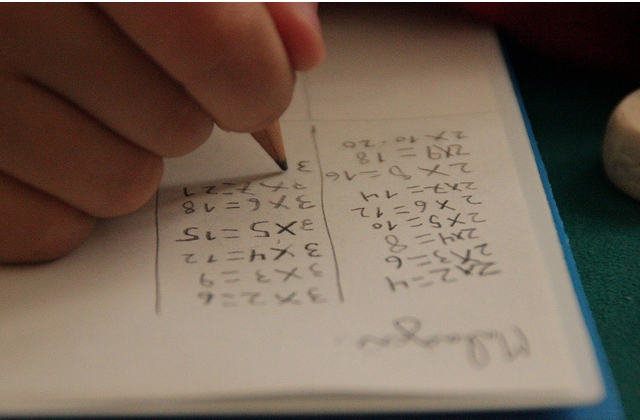 2x2=4
2x3=6
2x4=8
2x5=10
2x6=12
2x7=14
2x8=16
2x9=18
2x10=20
3x2=6
3x3=9
3x4=12
3x5=15
3x6=18
3x7=21
3